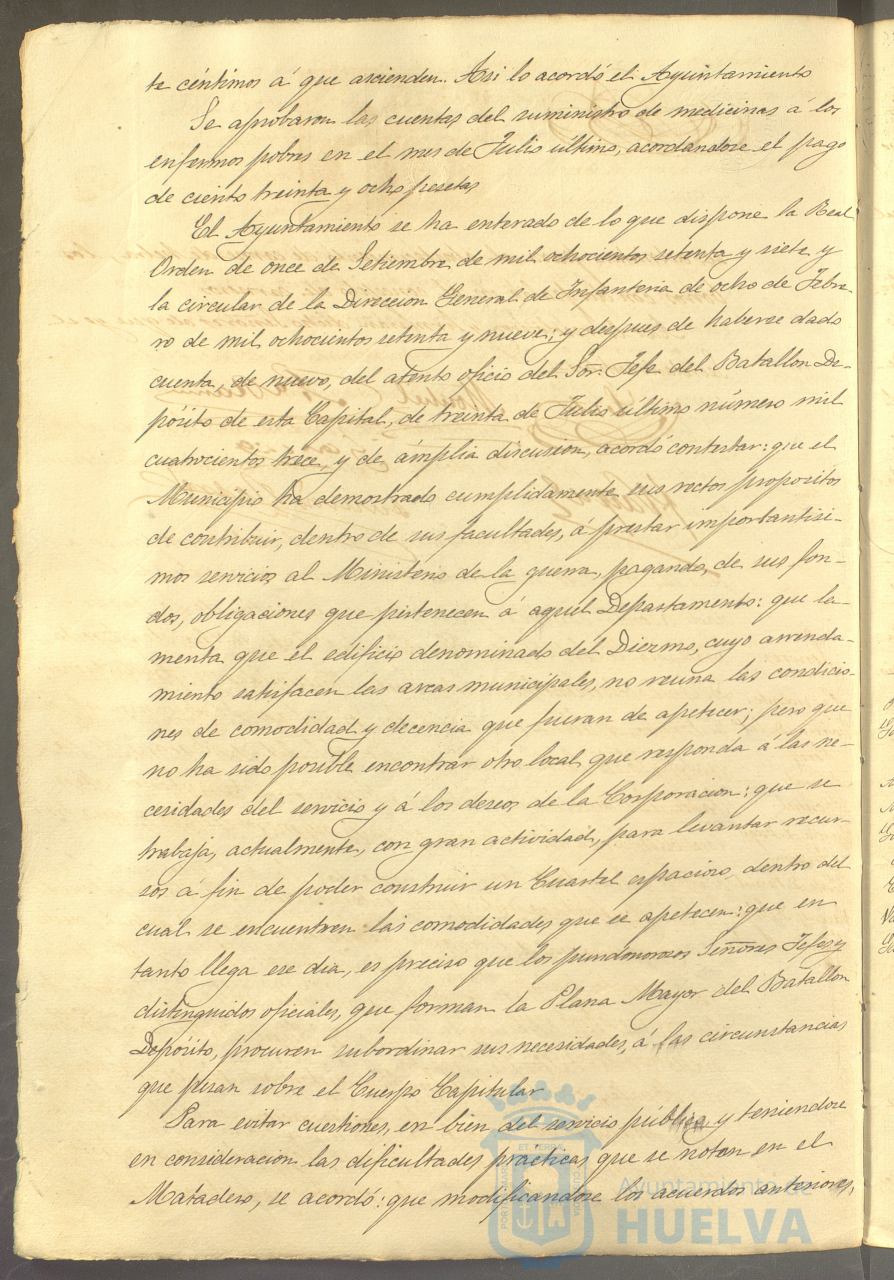 te céntimos á que ascienden. Asi lo acordó el Ayuntamiento
Se aprobaron las cuentas del suministro de medicinas á los
enfermos pobres en el mes de Julio último, acordandose el pago
de ciento treinta y ocho pesetas
El Ayuntamiento se ha enterado de lo que dispone la Real
Orden de once de Setiembre de mil ochocientos setenta y siete y
la circular de la Direccion General de Infanteria de ocho de Febre-
ro de mil ochocientos setenta y nueve; y despues de haberse dado
cuenta, de nuevo, del atento oficio del Sor. Jefe del Batallon De-
pósito de esta Capital, de treinta de Julio último número mil
cuatrocientos trece, y de ámplia discusion, acordó contestar: que el
Municipio ha demostrado cumplidamente sus rectos propositos
de contribuir, dentro de sus facultades, á prestar importantisi-
mos servicios al Ministerio de la guerra, pagando, de sus fon-
dos, obligaciones que pertenecen á aquel Departamento: que la-
menta que el edificio denominado del Diezmo, cuyo arrenda-
miento satisfacen las arcas municipales, no reuna las condicio-
nes de comodidad y decencia que fueran de apetecer; pero que
no ha sido posible encontrar otro local que responda á las ne-
cesidades del servicio y á los deseos de la Corporacion: que se
trabaja, actualmente, con gran actividad, para levantar recur-
sos á fin de poder construir un Cuartel espacioso, dentro del
cual se encuentren las comodidades que se apetecen: que en
tanto llega ese dia, es preciso que los pundonorosos Señores Jefes y
distinguidos oficiales, que forman la Plana Mayor del Batallon
Depósito, procuren subordinar sus necesidades, á las circunstancias
que pesan sobre el Cuerpo Capitular
Para evitar cuestiones, en bien del servicio público, y teniendose
en consideracion las dificultades practicas que se notan en el
Matadero, se acordó: que modificandose los acuerdos anteriores,
Ayuntamiento de
HUELVA